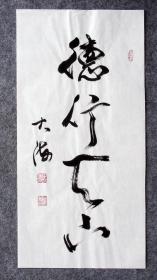 德行天下
大海